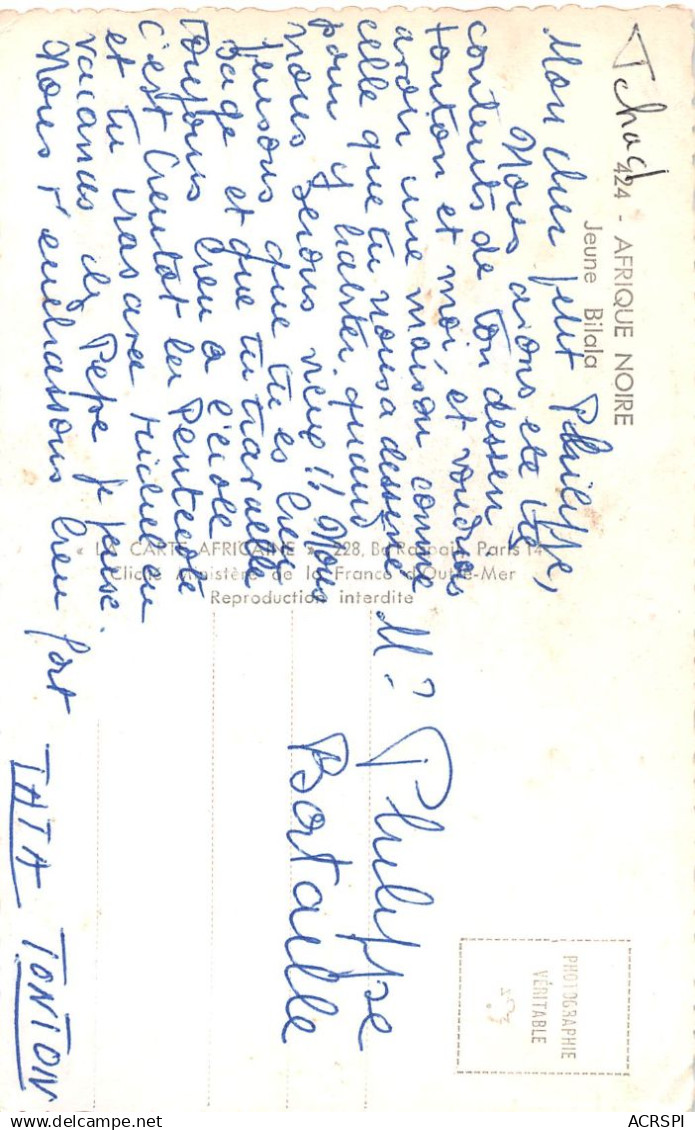 Tchad
424 - AFRIQUE NOIRE
Jeune Bilala
Mon cher petit Philippe,
Nous avons été très
contents de ton dessin
tonton et moi, et voudrions
avoir une maison comme
celle que tu nous a dessiné
pour y habiter quand
nous serons vieux!! Nous
pensons que tu es bien
sage et que tu travailles
toujours bien a l'école
c'est bientot la Pentecote
et tu iras avec Michel en
vacances chez Pépé je pense.
Nous t'embrassons bien fort
TATA TONTON
« LA CARTE AFRICAINE » 228, Bd Raspail, Paris 14
Cliché Ministère de la France d'Outre-Mer
Reproduction interdite
Mr Philippe
Bortaille
PHOTOGRAPHIE
VÉRITABLE
ACRSPI